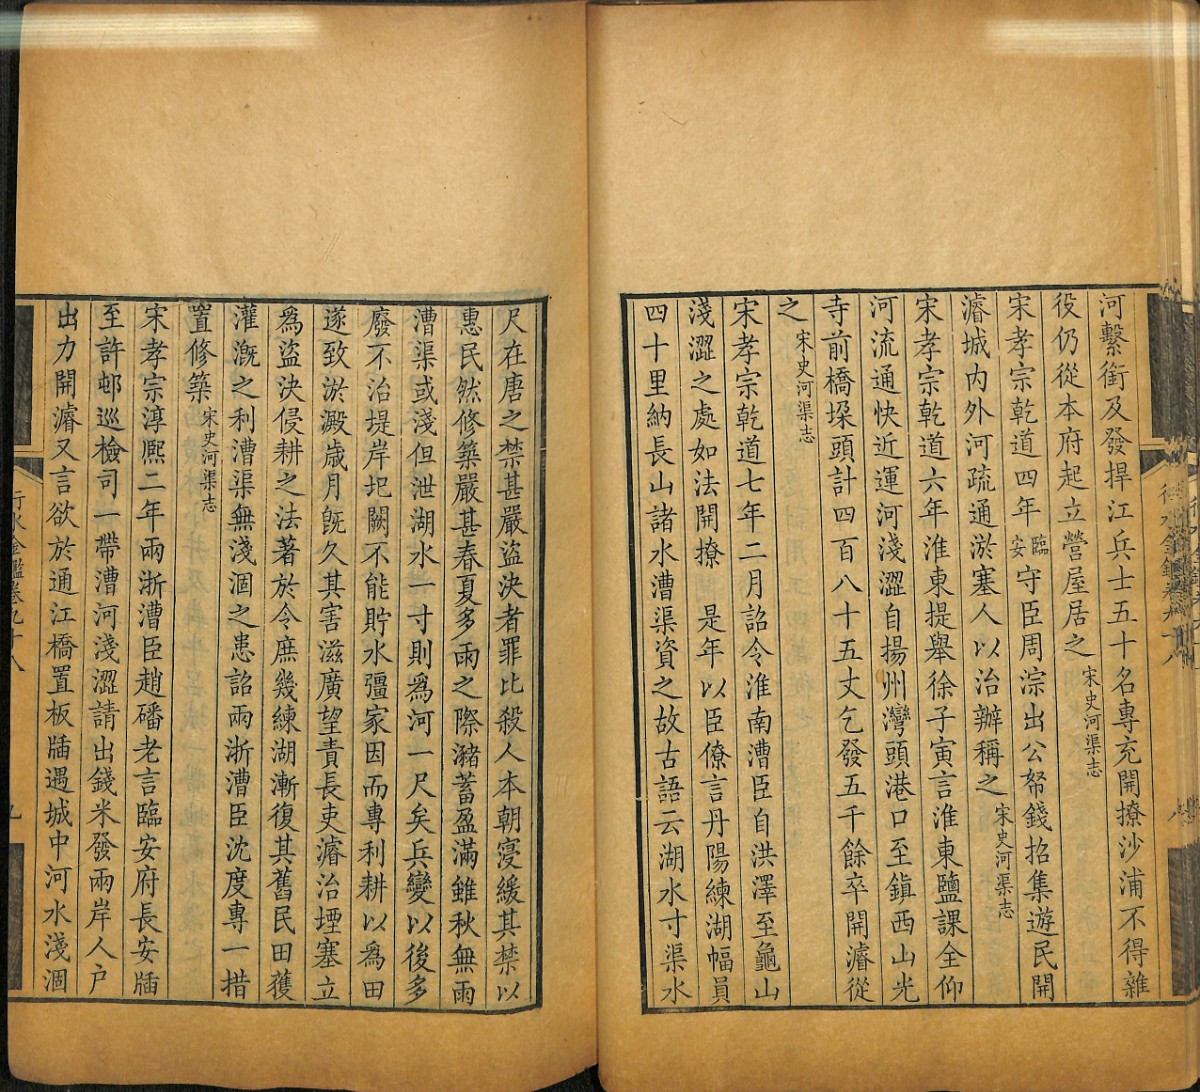 河繫銜及發捍江兵士五十名專充開撩沙浦不得雜
役仍從本府起立營屋居之宋史河渠志
宋孝宗乾道四年臨安守臣周淙出公帑錢招集遊民開
濬城內外河疏通淤塞人以治辦稱之宋史河渠志
宋孝宗乾道六年淮東提舉徐子寅言淮東鹽課全仰
河流通快近運河淺澀自揚州灣頭港口至鎮西山光
寺前橋垜頭計四百八十五丈乞發五千餘卒開濬從
之宋史河渠志
宋孝宗乾道七年二月詔令淮南漕臣自洪澤至龜山
淺澀之處如法開撩 是年以臣僚言丹陽練湖幅員
四十里納長山諸水漕渠資之故古語云湖水寸渠水
尺在唐之禁甚嚴盜決者罪比殺人本朝寖緩其禁以
惠民然修築嚴甚春夏多雨之際瀦蓄盈滿雖秋無雨
漕渠或淺但泄湖水一寸則爲河一尺矣兵變以後多
廢不治堤岸圮闕不能貯水彊家因而專利耕以爲田
遂致淤澱歲月旣久其害滋廣望責長吏濬治堙塞立
爲盜決侵耕之法著於令庶幾練湖漸復其舊民田獲
灌漑之利漕渠無淺涸之患詔兩浙漕臣沈度專一措
置修築宋史河渠志
宋孝宗淳熙二年兩浙漕臣趙磻老言臨安府長安牐
至許邨巡檢司一帶漕河淺澀請出錢米發兩岸人戶
出力開濬又言欲於通江橋置板牐遇城中河水淺涸
行水金鑑卷九十八
九